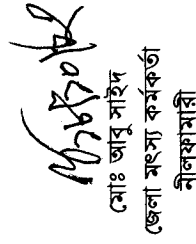 মোঃ আবু সাইদ
জেলা মৎস্য কর্মকর্তা
নীলফামারী